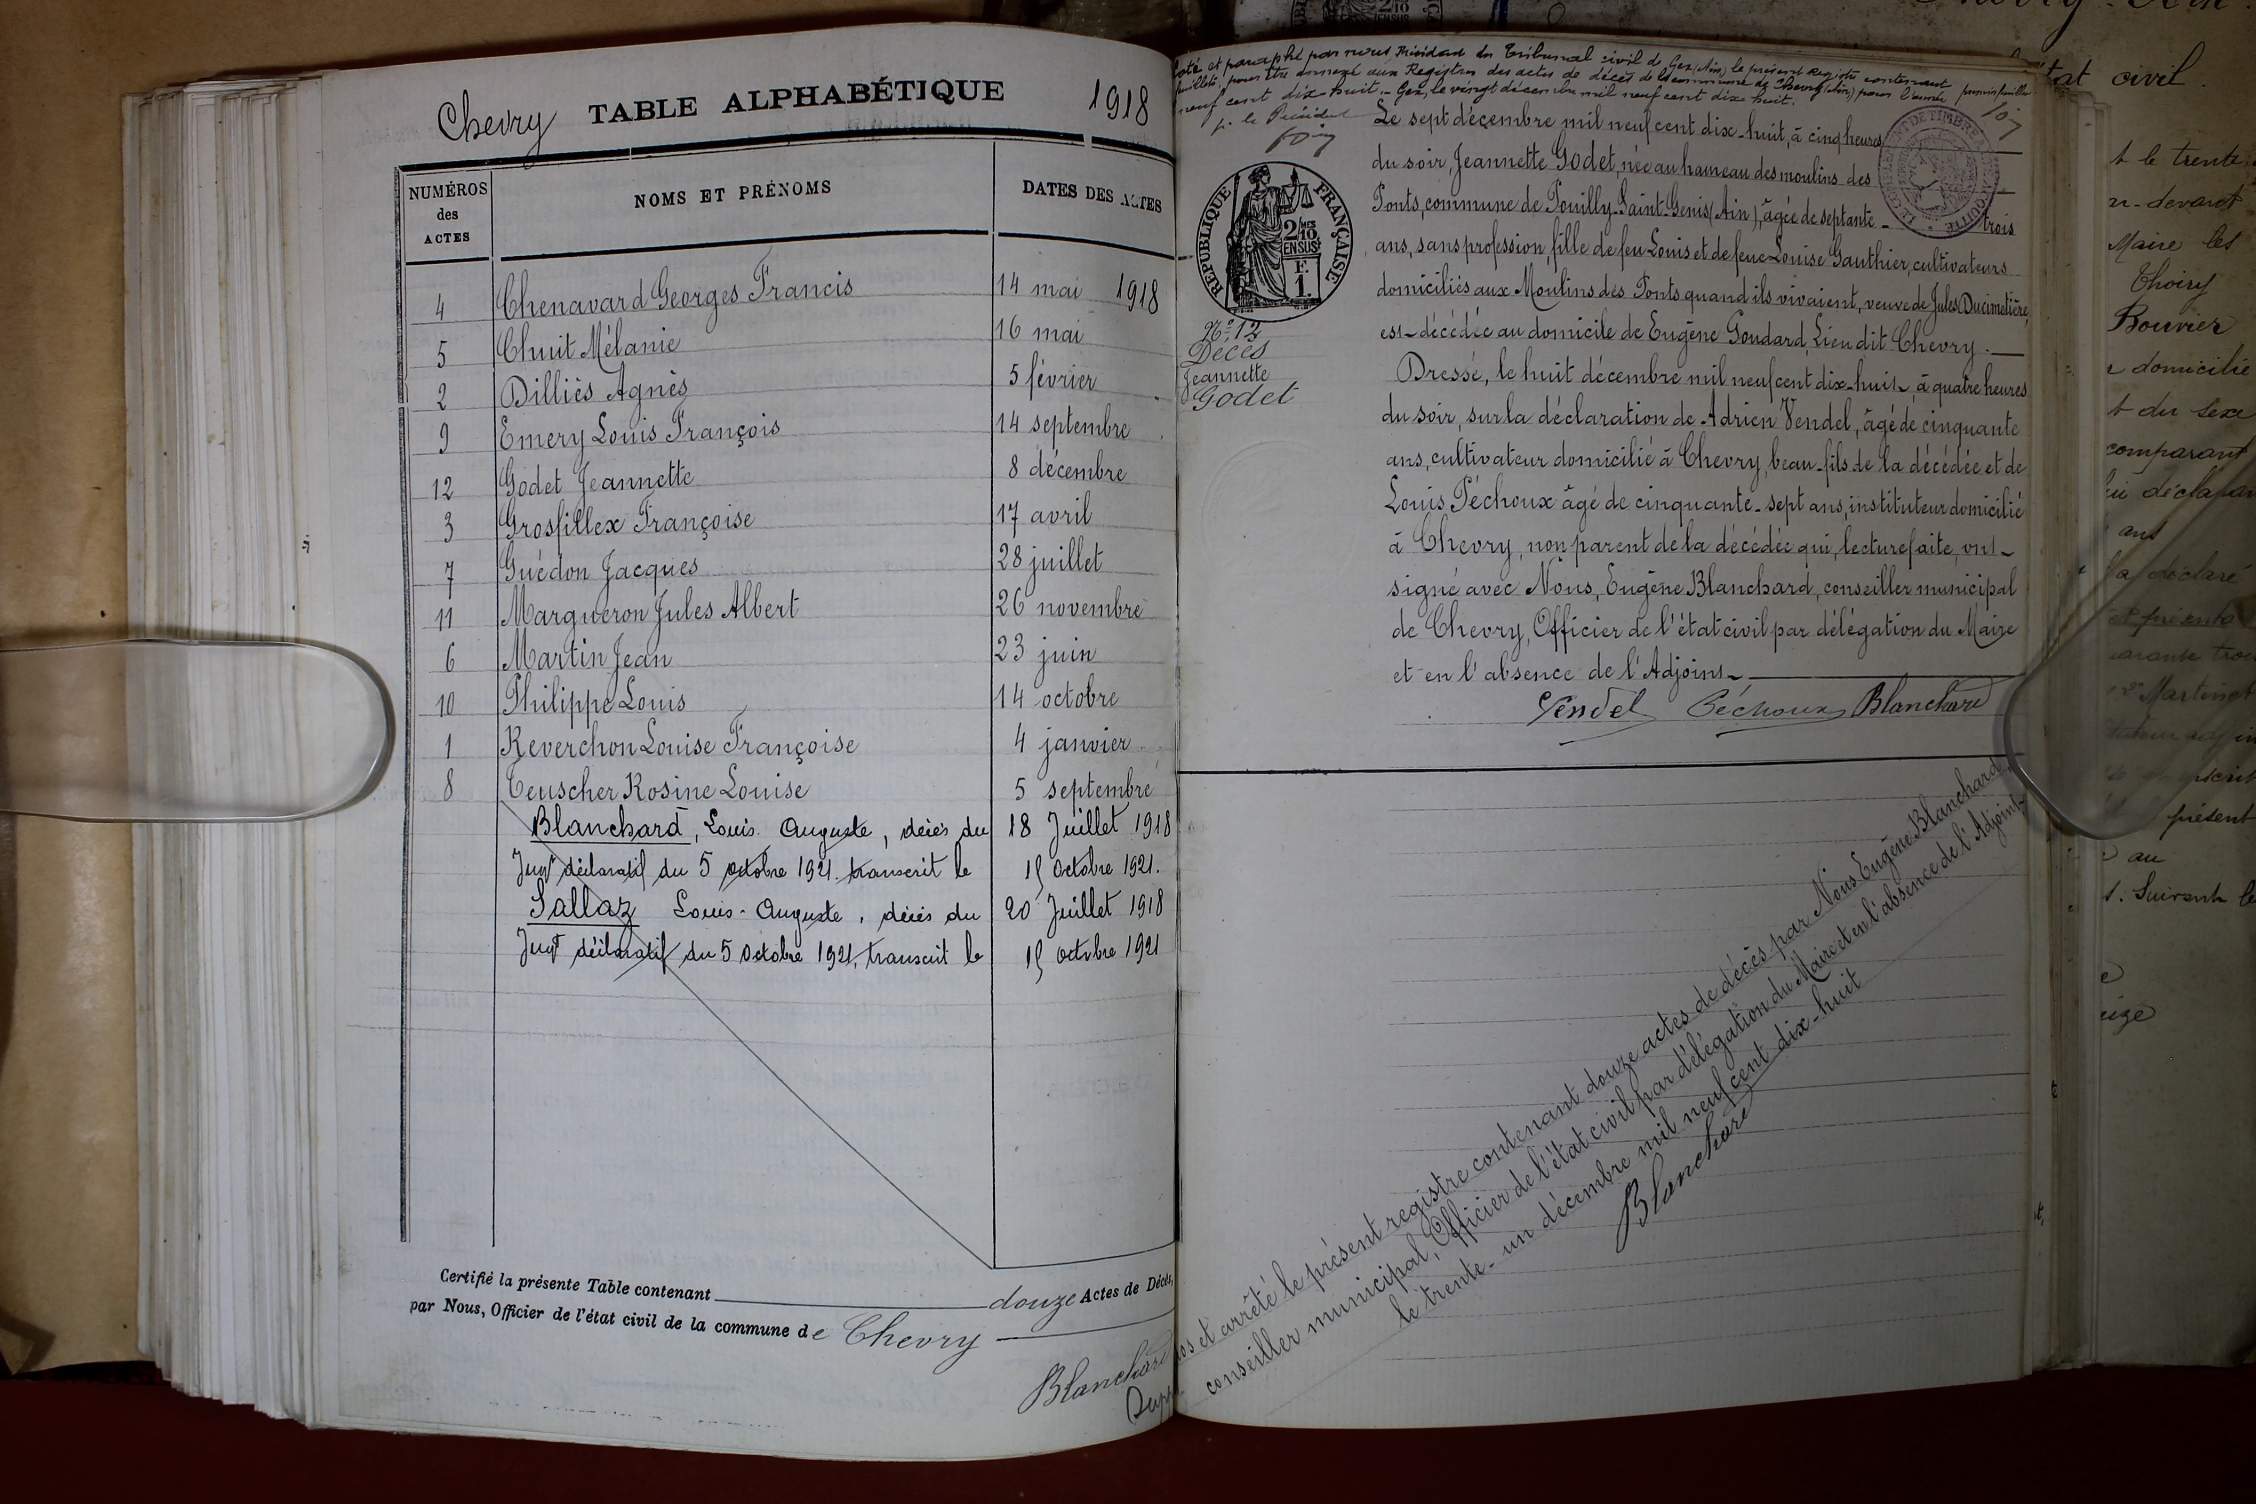 Chevry TABLE ALPHABÉTIQUE 1918
NUMÉROS des ACTES NOMS ET PRÉNOMS DATES DES ACTES
4 Chenavard Georges Francis 14 mai 1918
5 Chuit Mélanie 16 mai
2 Dilliès Agnès 5 février
9 Emery Louis François 14 septembre
12 Godet Jeannette 8 décembre
3 Grosfillex Françoise 17 avril
7 Guédon Jacques 28 juillet
11 Margueron Jules Albert 26 novembre
6 Martin Jean 23 juin
10 Philippe Louis 14 octobre
1 Reverchon Louise Françoise 4 janvier
8 Teuscher Rosine Louise 5 septembre
Blanchard, Louis Auguste, décès du 18 Juillet 1918
Jugt déclaratif du 5 octobre 1921. transcrit le 15 octobre 1921.
Sallaz Louis-Auguste, décès du 20 Juillet 1918
Jugt déclaratif du 5 octobre 1921, transcrit le 15 octobre 1921
Certifié la présente Table contenant douze Actes de Décès,
par Nous, Officier de l'état civil de la commune de Chevry
Blanchard
Coté et paraphé par nous, Président du Tribunal civil de Gex (Ain), le présent registre contenant
feuillets, pour être annexé aux Registres des actes de décès de la commune de Chevry (Ain) pour l'année
neuf cent dix-huit. - Gex, le vingt décembre mil neuf cent dix huit.
p. le Président
RÉPUBLIQUE FRANÇAISE
2/10 MES EN SUS
F. 1.
No 12
Décès
Jeannette
Godet
Le sept décembre mil neuf cent dix-huit, à cinq heures
du soir, Jeannette Godet, née au hameau des moulins des
Ponts, commune de Pouilly-Saint-Genis (Ain), âgée de septante-trois
ans, sans profession, fille de feu Louis et de feue Louise Gauthier, cultivateurs
domiciliés aux Moulins des Ponts quand ils vivaient, veuve de Jules Ducimetière,
est décédée au domicile de Eugène Goudard, Lieu dit Chevry.
Dressé, le huit décembre mil neuf cent dix-huit, à quatre heures
du soir, sur la déclaration de Adrien Vendel, âgé de cinquante
ans, cultivateur domicilié à Chevry, beau-fils de la décédée et de
Louis Péchoux âgé de cinquante-sept ans, instituteur domicilié
à Chevry, non parent de la décédée qui, lecture faite, ont
signé avec Nous, Eugène Blanchard, conseiller municipal
de Chevry, Officier de l'état civil par délégation du Maire
et en l'absence de l'Adjoint
Vendel Péchoux Blanchard
los et arrêté le présent registre contenant douze actes de décès par Nous Eugène Blanchard,
conseiller municipal, Officier de l'état civil par délégation du Maire et en l'absence de l'Adjoint
le trente-un décembre mil neuf cent dix-huit
Blanchard
tat civil
t le trente
Maire les
Thoiry
Bouvier
domicilié
t du sexe
comparant
ans
a déclaré
Martinet
présent
au
Suivent le